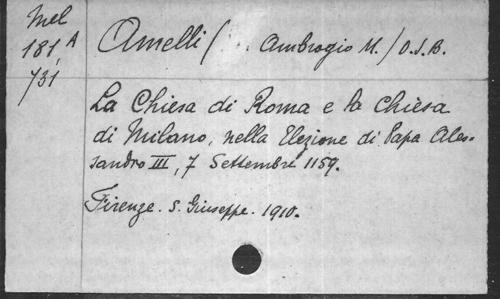 Mel
181 A
731
Amelli / Ambrogio M. / O.S.B.
La Chiesa di Roma e la Chiesa
di Milano, nella Elezione di Papa Ales-
sandro III, 7 Settembre 1159.
Firenze. S. Giuseppe. 1910.